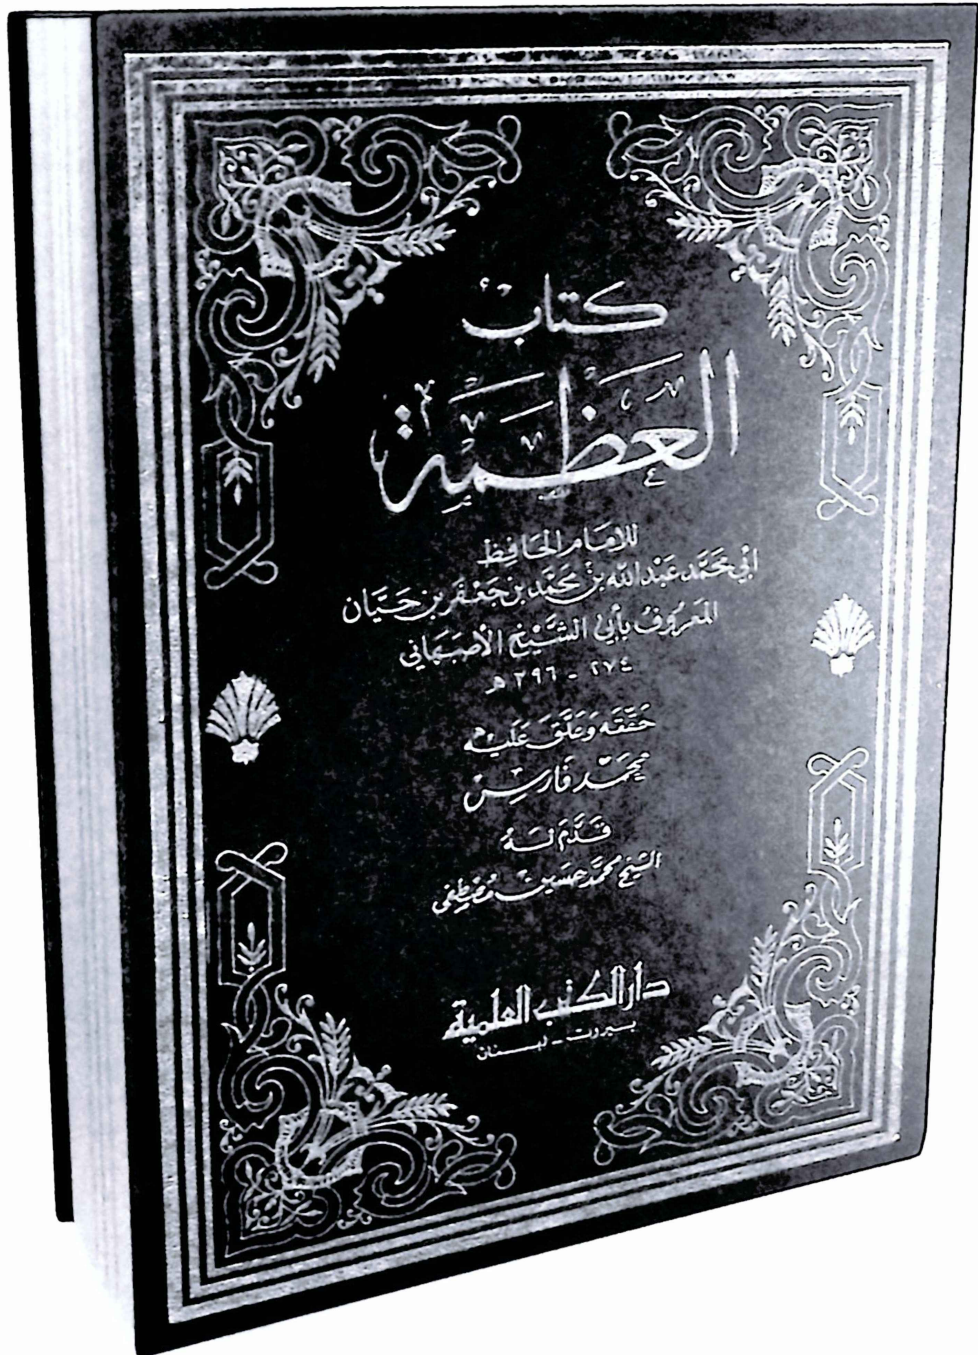 كتاب
العظمة
للامام الحافظ
ابي محمد عبد الله بن محمد بن جعفر بن حيان
المعروف بأبي الشيخ الأصبهاني
٢٧٤ - ٣٩٦ هـ
حققه وعلق عليه
محمد فارس
قدم له
الشيخ محمد حسين مصطفى
دار الكتب العلمية
بيروت - لبنان